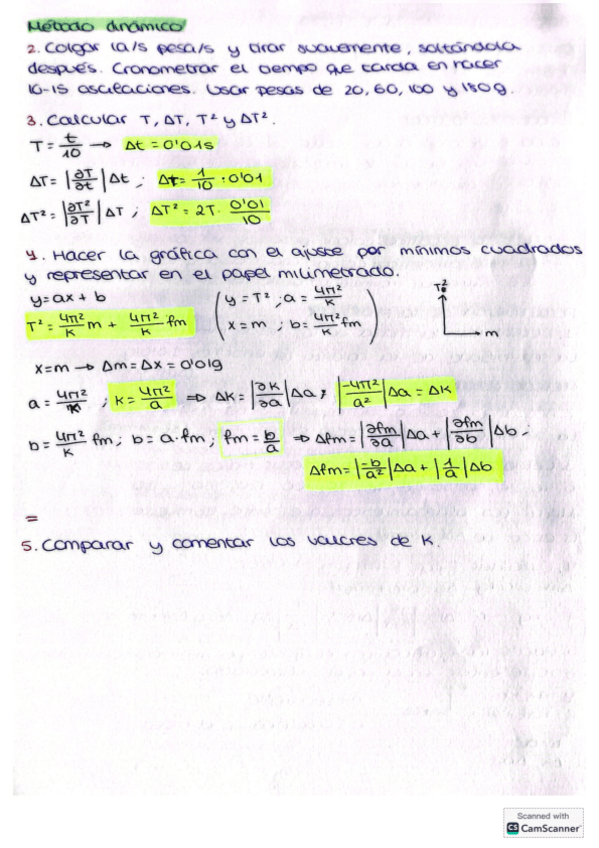 Método dinámico
2. Colgar la/s pesa/s y tirar suavemente, soltándola
después. Cronometrar el tiempo que tarda en hacer
10-15 oscilaciones. Usar pesas de 20, 60, 100 y 150g.
3. Calcular T, ΔT, T² y ΔT².
T = t/10 → Δt = 0'01s
ΔT = |∂T/∂t| Δt ; ΔT = 1/10 · 0'01
ΔT² = |∂T²/∂T| ΔT ; ΔT² = 2T · 0'01/10
4. Hacer la gráfica con el ajuste por mínimos cuadrados
y representar en el papel milimetrado.
y = ax + b
(y = T² ; a = 4π²/k
T²
T² = 4π²/k m + 4π²/k · fm
x = m ; b = 4π²/k fm)
m
x = m → Δm = Δx = 0'01g
a = 4π²/k ; k = 4π²/a ⇒ Δk = |∂k/∂a| Δa ; |-4π²/a²| Δa = Δk
b = 4π²/k fm ; b = a · fm ; fm = b/a ⇒ Δfm = |∂fm/∂a| Δa + |∂fm/∂b| Δb
Δfm = |-b/a²| Δa + |1/a| Δb
=
5. Comparar y comentar los valores de k.
Scanned with
CS CamScanner